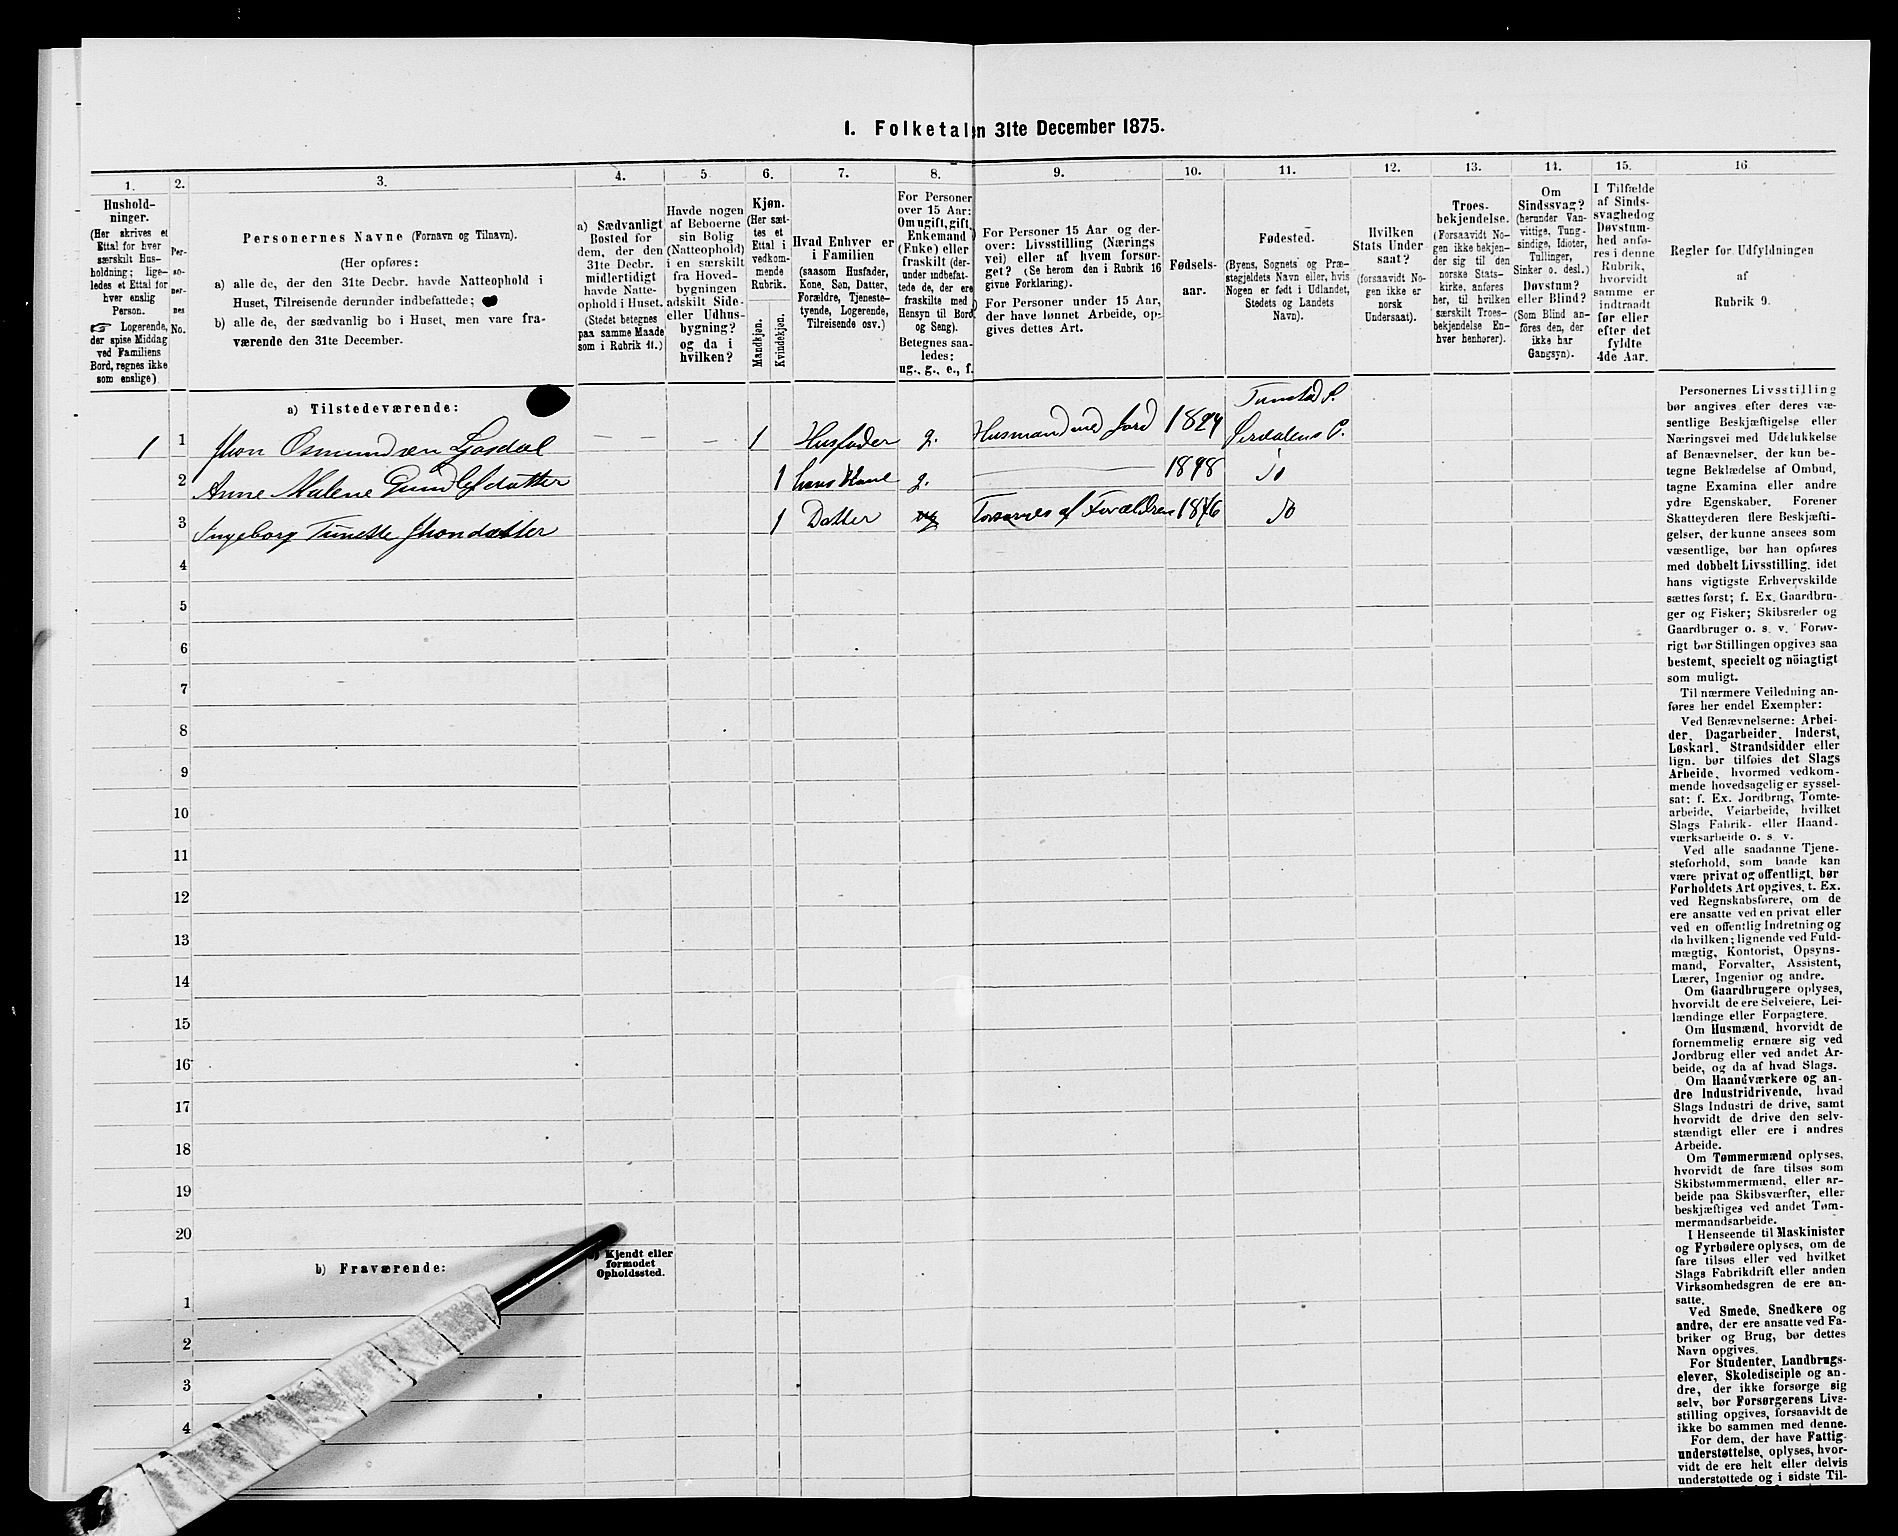 I. Folketal en 31te December 1875.
1.
Hushold-
ninger.
(Her skrives et
Ettal for hver
særskilt Hus-
holdning; lige-
ledes et Ettal for
hver enslig
Person.
☞ Logerende,
der spise Middag
ved Familiens
Bord, regnes ikke
som enslige)
2.
Per-
so-
ner-
nes
No.
3.
Personernes Navne (Fornavn og Tilnavn).
(Her opføres:
a) alle de, der den 31te Decbr. havde Natteophold i
Huset, Tilreisende derunder indbefattede;
b) alle de, der sædvanlig bo i Huset, men vare fra-
værende den 31te December.
4.
a) Sædvanligt
Bosted for
dem, der den
31te Decbr.
midlertidigt
havde Natte-
ophold i Huset.
(Stedet betegnes
paa samme Maade
som i Rubrik 11.)
5.
Havde nogen
af Beboerne
sin Bolig
(Natteophold)
i en særskilt
fra Hoved-
bygningen
adskilt Side-
eller Udhus-
bygning?
og da i
hvilken?
6.
Kjøn.
(Her sæt-
tes et
Ettal i
vedkom-
mende
Rubrik.
Mandkjøn.
Kvindekjøn.
7.
Hvad Enhver er
i Familien
(saasom Husfader,
Kone, Søn, Datter,
Forældre, Tjeneste-
tyende, Logerende,
Tilreisende osv.)
8.
For Personer
over 15 Aar:
Om ugift, gift,
Enkemand
(Enke) eller
fraskilt (der-
under indbefat-
tede de, der ere
fraskilte med
Hensyn til Bord
og Seng).
Betegnes saa-
ledes:
ug., g., e., f.
9.
For Personer 15 Aar og der-
over: Livsstilling (Nærings
vei) eller af hvem forsør-
get? (Se herom den i Rubrik 16
givne Forklaring).
For Personer under 15 Aar,
der have lønnet Arbeide, op-
gives dettes Art.
10.
Fødsels-
aar.
11.
Fødested.
(Byens, Sognets og Præ-
stegjeldets Navn eller, hvis
Nogen er født i Udlandet,
Stedets og Landets
Navn).
12.
Hvilken
Stats Under
saat?
(forsaavidt No-
gen ikke er
norsk
Undersaat).
13.
Troes-
bekjendelse.
(Forsaavidt No-
gen ikke bekjen-
der sig til den
norske Stats-
kirke, anføres
her, til hvilken
særskilt Troes-
bekjendelse En-
hver henhører).
14.
Om
Sindssvag?
(herunder Van-
vittige, Tung-
sindige, Idioter,
Tullinger,
Sinker o. desl.)
Døvstum?
eller Blind?
(Som Blind an-
føres den, der
ikke har
Gangsyn).
15.
I Tilfælde
af Sinds-
svaghed og
Døvstum-
hed anfø-
res i denne
Rubrik,
hvorvidt
samme er
indtraadt
før eller
efter det
fyldte
4de Aar.
16
Regler for Udfyldningen
af
Rubrik 9.
a) Tilstedeværende:
1 1 Jhon Osmundsen Ljosdal — — — 1 Husfader g. Husmand med Jord 1824 Tunstad S. Øirdalens P.
2 Anne Malene Gundlefsdatter 1 hans Kone g. — 1828 do
3 Ingeborg Tunette Jhondatter 1 Datter ug Forsørges af Forældrene 1846 do
4
5
6
7
8
9
10
11
12
13
14
15
16
17
18
19
20
b) Fraværende:
b) Kjendt eller
formodet
Opholdssted.
1
2
3
4
Personernes Livsstilling
bør angives efter deres væ-
sentlige Beskjæftigelse eller
Næringsvei med Udelukkelse
af Benævnelser, der kun be-
tegne Beklædelse af Ombud,
tagne Examina eller andre
ydre Egenskaber. Forener
Skatteyderen flere Beskjæfti-
gelser, der kunne ansees som
væsentlige, bør han opføres
med dobbelt Livsstilling, idet
hans vigtigste Erhvervskilde
sættes først; f. Ex. Gaardbru-
ger og Fisker; Skibsreder og
Gaardbruger o. s. v. Forøv-
rigt bør Stillingen opgives saa
bestemt, specielt og nöiagtigt
som muligt.
Til nærmere Veiledning an-
føres her endel Exempler:
Ved Benævnelserne: Arbei-
der, Dagarbeider, Inderst,
Løskarl, Strandsidder eller
lign. bør tilføies det Slags
Arbeide, hvormed vedkom-
mende hovedsagelig er syssel-
sat: f. Ex. Jordbrug, Tomte-
arbeide, Veiarbeide, hvilket
Slags Fabrik- eller Haand-
værksarbeide o. s. v.
Ved alle saadanne Tjene-
steforhold, som baade kan
være privat og offentligt, bør
Forholdets Art opgives, t. Ex.
ved Regnskabsførere, om de
ere ansatte ved en privat eller
ved en offentlig Indretning og
da hvilken; lignende ved Fuld-
mægtig, Kontorist, Opsyns-
mand, Forvalter, Assistent,
Lærer, Ingeniør og andre.
Om Gaardbrugere oplyses,
hvorvidt de ere Selveiere, Lei-
lændinge eller Forpagtere.
Om Husmænd, hvorvidt de
fornemmelig ernære sig ved
Jordbrug eller ved andet Ar-
beide, og da af hvad Slags.
Om Haandværkere og an-
dre Industridrivende, hvad
Slags Industri de drive, samt
hvorvidt de drive den selv-
stændigt eller ere i andres
Arbeide.
Om Tømmermænd oplyses,
hvorvidt de fare tilsøs som
Skibstømmermænd, eller ar-
beide paa Skibsværfter, eller
beskjæftiges ved andet Tøm-
mermandsarbeide.
I Henseende til Maskinister
og Fyrbødere oplyses, om de
fare tilsøs eller ved hvilket
Slags Fabrikdrift eller anden
Virksomhedsgren de ere an-
satte.
Ved Smede, Snedkere og
andre, der ere ansatte ved Fa-
briker og Brug, bør dettes
Navn opgives.
For Studenter, Landbrugs-
elever, Skoledisciple og an-
dre, der ikke forsørge sig
selv, bør Forsørgerens Livs-
stilling opgives, forsaavidt de
ikke bo sammen med denne.
For dem, der have Fattig-
understøttelse, oplyses, hvor-
vidt de ere helt eller delvis
understøttede og i sidste Til-